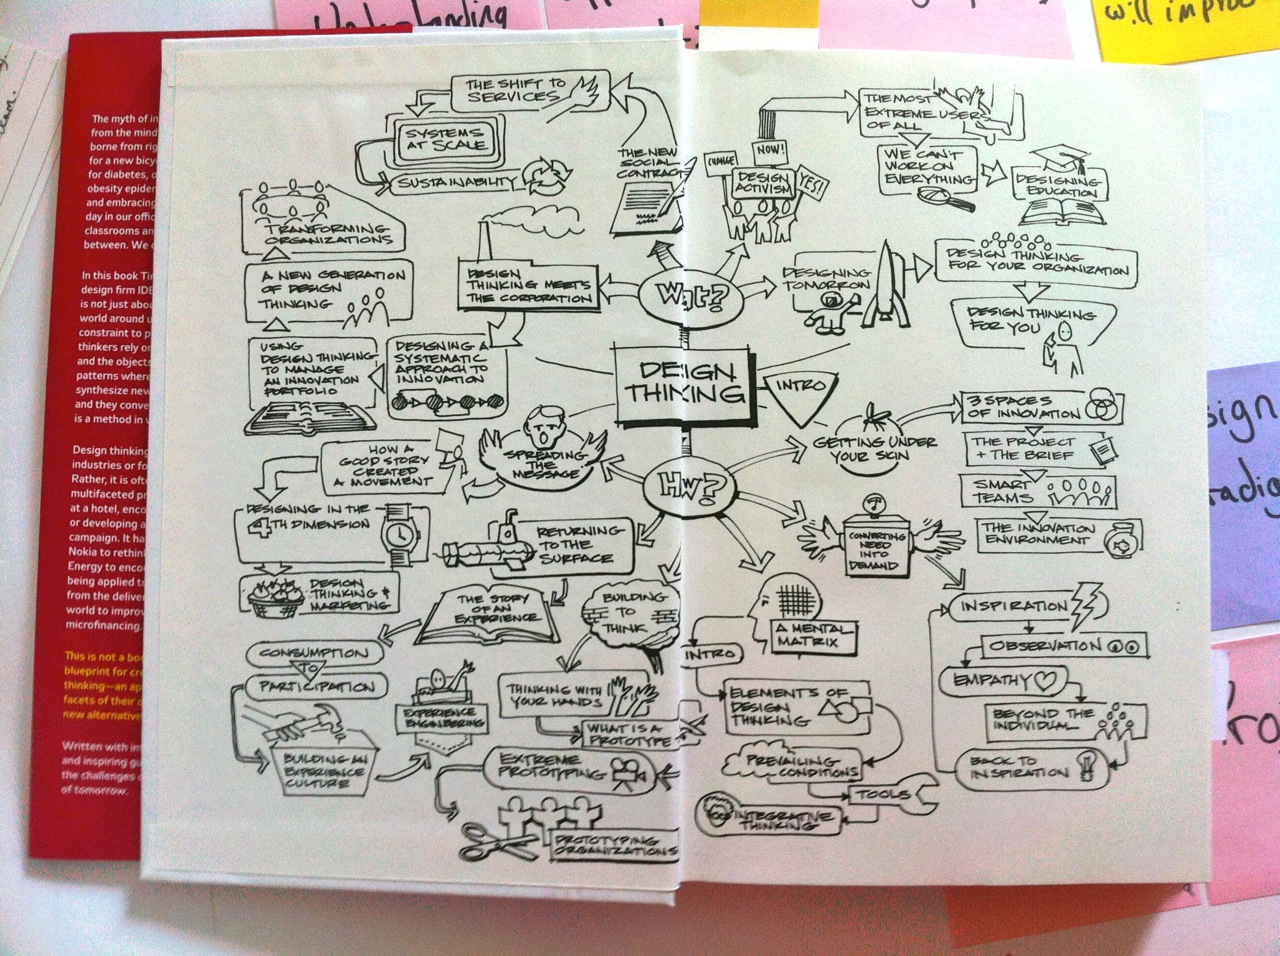 Understanding
will impro
The myth of in
from the mind
borne from rig
for a new bicy
for diabetes, o
obesity epider
and embracing
day in our offic
classrooms an
between. We c
In this book Tir
design firm IDE
is not just abou
world around u
constraint to p
thinkers rely or
and the objects
patterns where
synthesize new
and they conve
is a method in v
Design thinking
industries or fo
Rather, it is oft
multifaceted pr
at a hotel, enco
or developing a
campaign. It ha
Nokia to rethin
Energy to encou
being applied to
from the deliver
world to improv
microfinancing.
This is not a boo
blueprint for cre
thinking—an ap
facets of their o
new alternative
Written with in
and inspiring gu
the challenges o
of tomorrow.
THE SHIFT TO
SERVICES
SYSTEMS
AT SCALE
SUSTAINABILITY
THE NEW
SOCIAL
CONTRACT
TRANSFORMING
ORGANIZATIONS
A NEW GENERATION
OF DESIGN
THINKING
USING
DESIGN THINKING
TO MANAGE
AN INNOVATION
PORTFOLIO
DESIGN
THINKING MEETS
THE CORPORATION
DESIGNING A
SYSTEMATIC
APPROACH TO
INNOVATION
CHANGE
NOW!
DESIGN
ACTIVISM
YES!
THE MOST
EXTREME USERS
OF ALL
WE CAN'T
WORK ON
EVERYTHING
DESIGNING
EDUCATION
DESIGNING
TOMORROW
DESIGN THINKING
FOR YOUR ORGANIZATION
DESIGN THINKING
FOR YOU
DESIGN
THINKING
INTRO
HOW A
GOOD STORY
CREATED
A MOVEMENT
SPREADING
THE
MESSAGE
DESIGNING IN THE
4TH DIMENSION
DESIGN
THINKING &
MARKETING
RETURNING
TO THE
SURFACE
THE STORY
OF AN
EXPERIENCE
CONSUMPTION
TO
PARTICIPATION
BUILDING AN
EXPERIENCE
CULTURE
EXPERIENCE
ENGINEERING
BUILDING
TO
THINK
THINKING WITH
YOUR HANDS
WHAT IS A
PROTOTYPE
EXTREME
PROTOTYPING
PROTOTYPING
ORGANIZATIONS
GETTING UNDER
YOUR SKIN
3 SPACES
OF INNOVATION
THE PROJECT
+ THE BRIEF
SMART
TEAMS
THE INNOVATION
ENVIRONMENT
CONVERTING
NEED
INTO
DEMAND
INSPIRATION
OBSERVATION
EMPATHY
BEYOND THE
INDIVIDUAL
BACK TO
INSPIRATION
A MENTAL
MATRIX
INTRO
ELEMENTS OF
DESIGN
THINKING
PREVAILING
CONDITIONS
TOOLS
INTEGRATIVE
THINKING
sign
radig